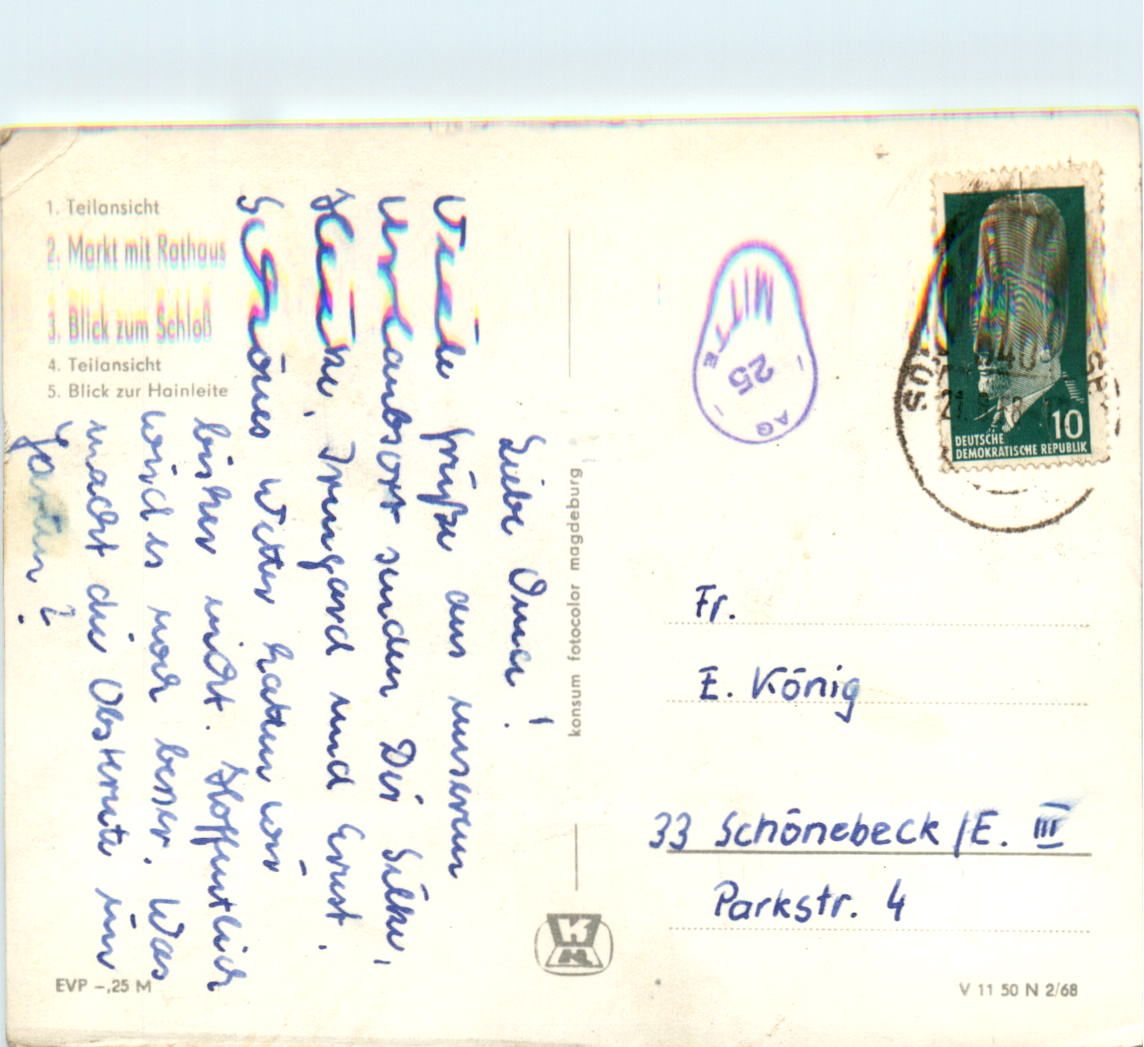 1. Teilansicht
2. Markt mit Rathaus
3. Blick zum Schloß
4. Teilansicht
5. Blick zur Hainleite
Liebe Omi!
Viele Grüße aus unserem
Urlaubsort senden Dir Silke,
Heike, Irmgard und Ernst.
Schönes Wetter hatten wir
bisher nicht. Hoffentlich
wird es noch besser. Was
macht die Obsternte im
Garten?
EVP –,25 M
konsum fotocolor magdeburg
MITTE
25
AG
DEUTSCHE
DEMOKRATISCHE REPUBLIK
10
Fr.
E. König
33 Schönebeck /E. III
Parkstr. 4
V 11 50 N 2/68